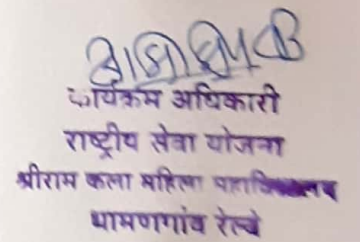 कार्यक्रम अधिकारी
राष्ट्रीय सेवा योजना
श्रीराम कला महिला महाविद्यालय
धामणगांव रेल्वे